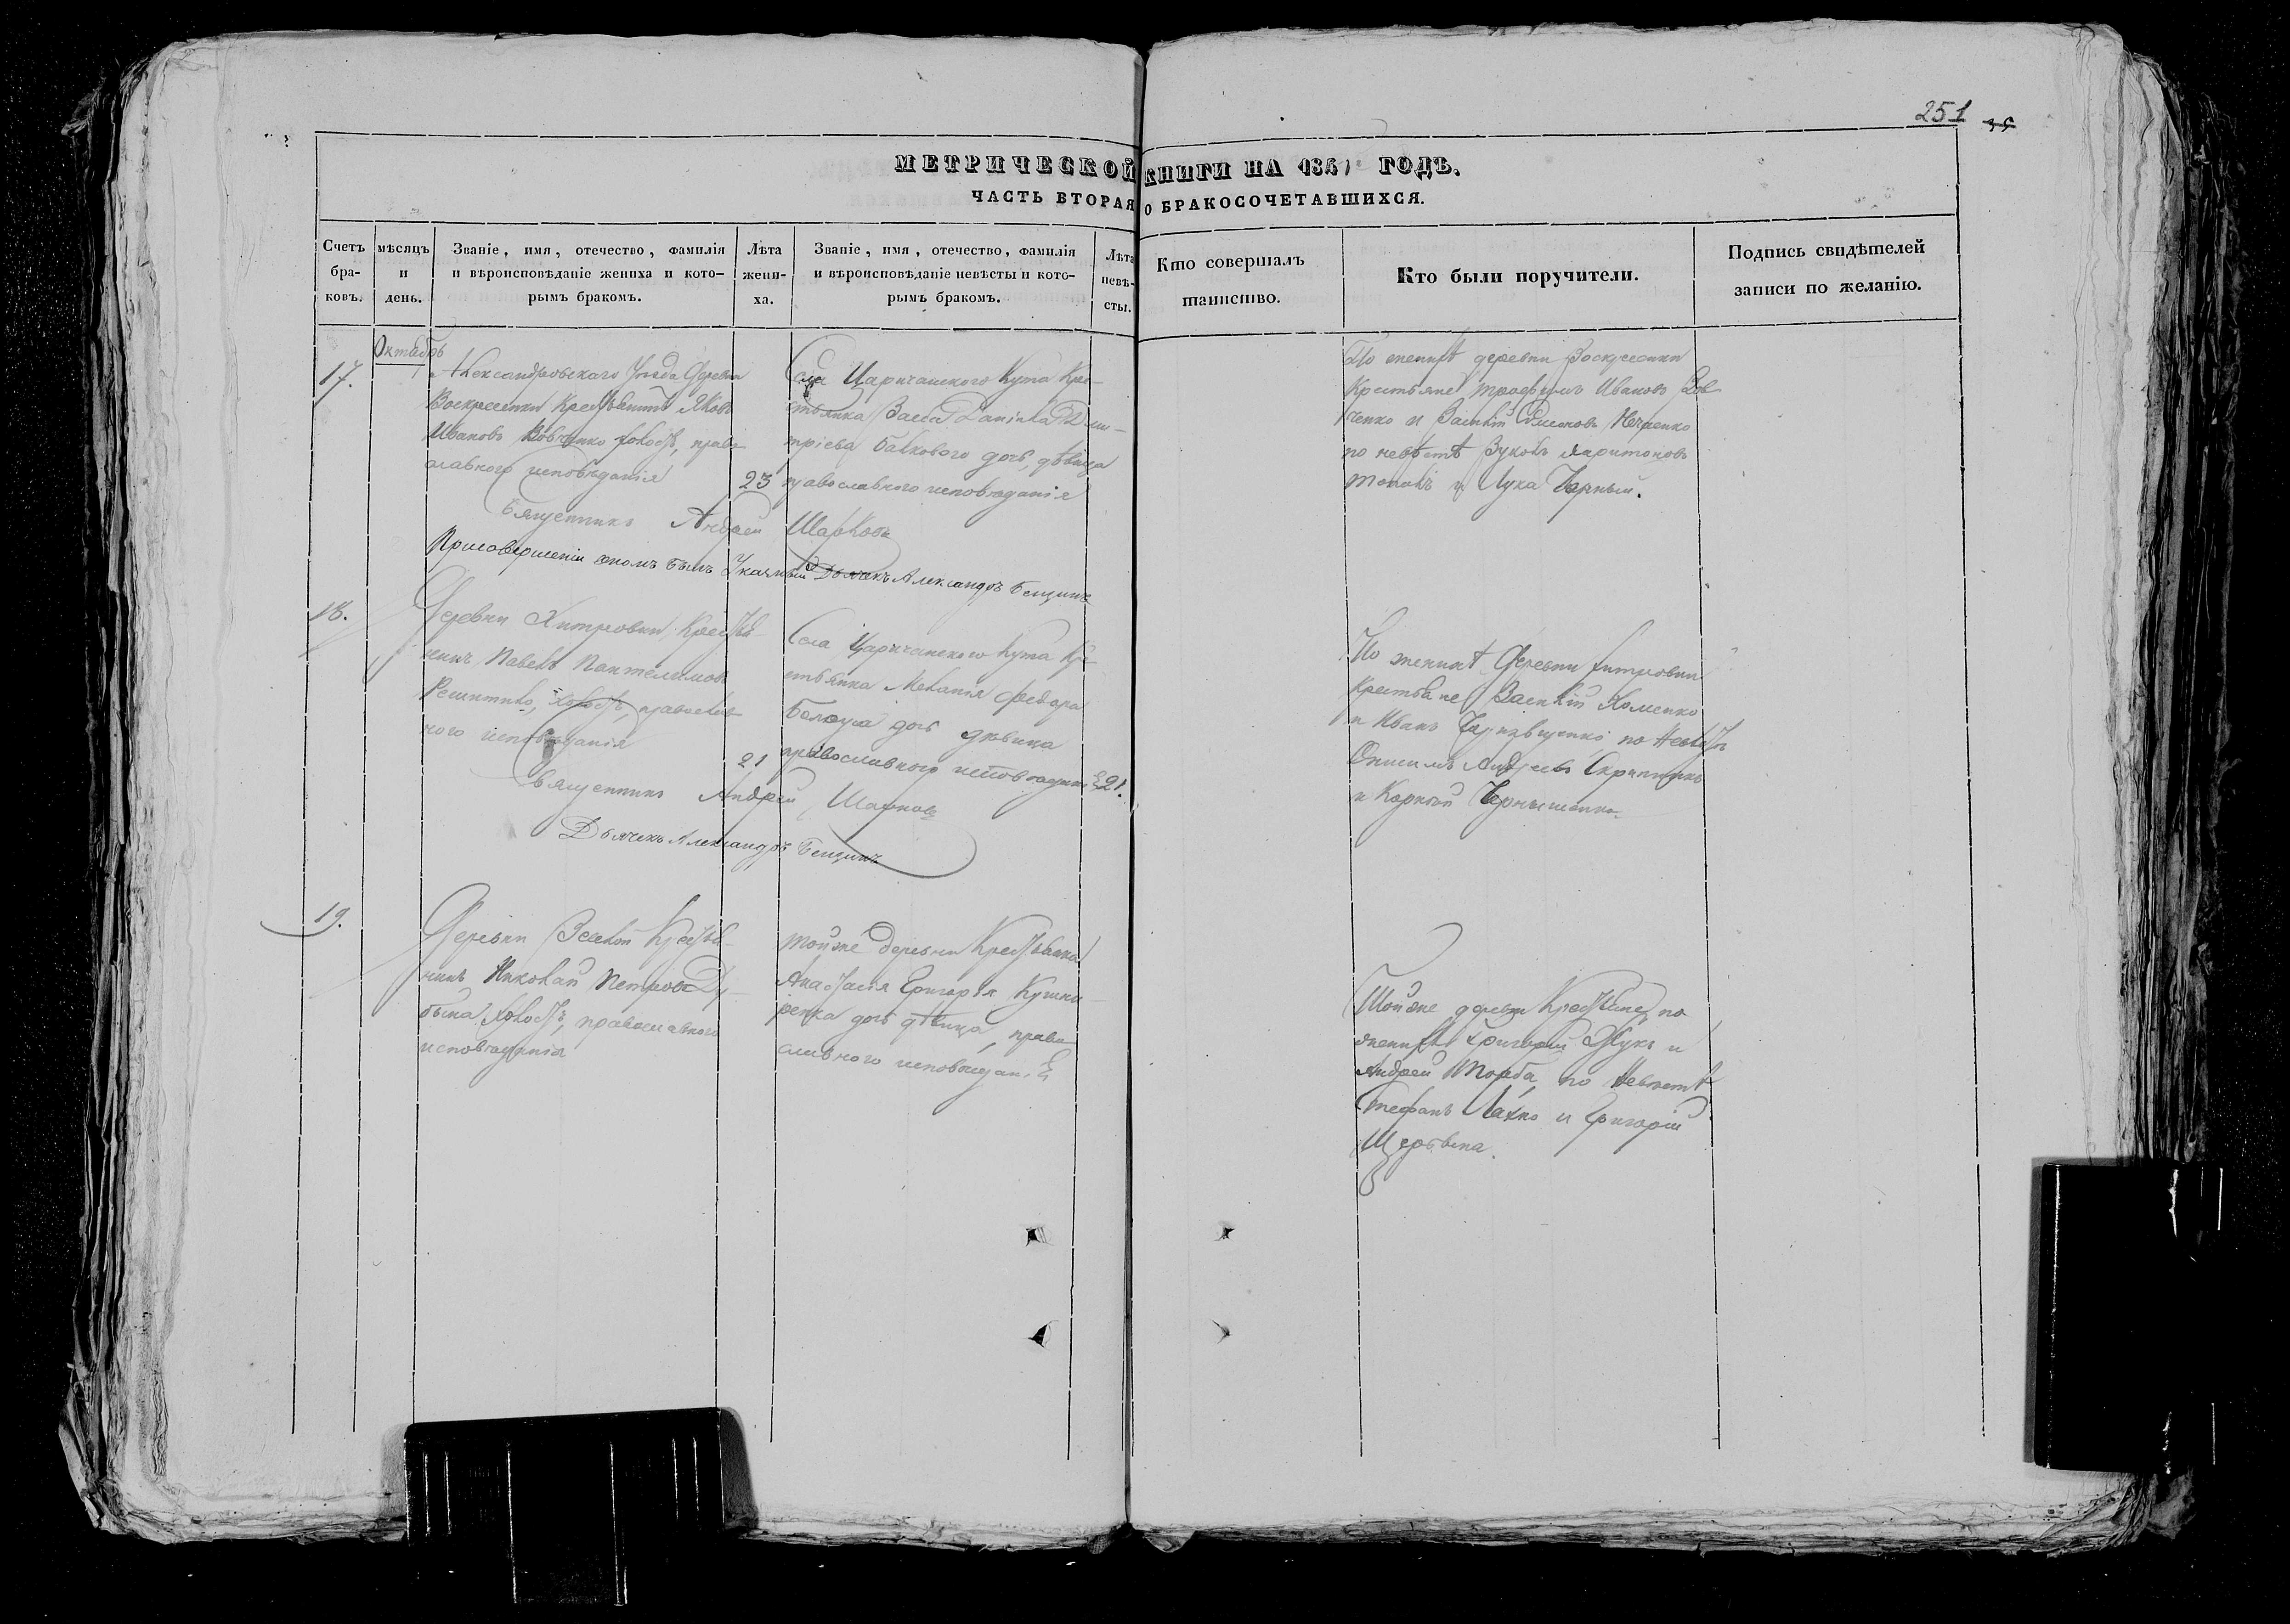 251
МЕТРИЧЕСКОЙ КНИГИ НА 184 ГОДЪ.
ЧАСТЬ ВТОРАЯ О БРАКОСОЧЕТАВШИХСЯ.
Счетъ бра- ковъ.
мѣсяцъ и день.
Званіе, имя, отечество, фамилія
и вѣроисповѣданіе жениха и кото-
рымъ бракомъ.
Лѣта жени- ха.
Званіе, имя, отечество, фамилія
и вѣроисповѣданіе невѣсты и кото-
рымъ бракомъ.
Лѣта невѣ- сты.
Кто совершалъ
таинство.
Кто были поручители.
Подпись свидѣтелей
записи по желанію.
17.
Октябрь
Александровскаго Уѣзда Деревни
Воскресенки Крестьянинъ Яковъ
Ивановъ Вовченко холостъ, право
славного исповѣданія
23
Села Царичанского Кута Кре-
стьянка Васса Даніила Дми-
тріева Балкового дочь, дѣвица
православного исповѣданія
По женихѣ деревни Воскресенки
Крестьяне Трофимъ Ивановъ Вов
ченко и Василій Семеновъ
по невѣстѣ Харитоновъ
и Лука Черный.
Священникъ Андрей Шарковъ
При совершеніи ономъ былъ Указный Дьячекъ Александръ Бенцинъ
18.
Деревни Хитровки Крестья
нинъ Павелъ Пантелимовъ
холостъ, православ
ного исповѣданія
21
Села Царичанского Кута Кре
стьянка Меланія Федора
Белоуса дочь дѣвица
православного исповѣданія
21.
По женихѣ Деревни Хитровки
Крестьяне Василій Хоменко
и Иванъ по Невѣстѣ
Онисимъ Андреевъ Скрипникъ
и Корній Чернышенко
Священникъ Андрей Шарковъ
Дьячекъ Александръ Бенцинъ
19.
Деревни Веселой Крестья-
нинъ Николай Петровъ Ду-
бына холостъ, православного
исповѣданія
Тойже деревни Крестьянка
Анастасія Григорія Кушни-
ренка дочь дѣвица, право
славного исповѣданія
Тойже деревни Крестьяне, по
женихѣ Григорій Жукъ и
Андрей Торба, по Невѣстѣ
Стефанъ Лахно и Григорій
Щербина.